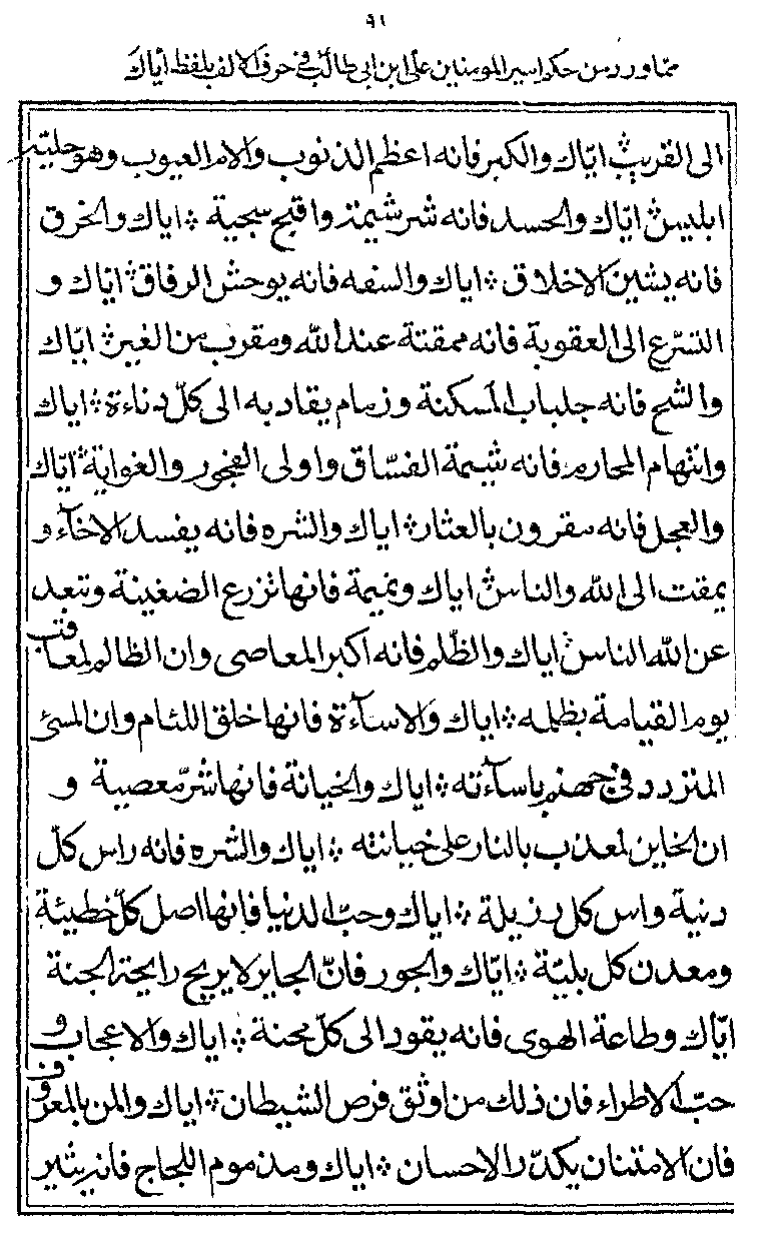 ٩١
مما ورد من حكم امير المومنين على ابن ابى طالب فى حرف الالف بلفظ اياك
الى القريب ∴ ايّاك والكبر فانه اعظم الذنوب والام العيوب وهو حلية
ابليس ∴ ايّاك والحسد فانه شر شيمة واقبح سجية ∴ اياك والخرق
فانه يشين الاخلاق ∴ اياك والسفه فانه يوحش الرفاق ∴ ايّاك و
التسرّع الى العقوبة فانه ممقتة عند الله ومقرب من الغير ∴ ايّاك
والشح فانه جلباب المسكنة وزمام يقاد به الى كلّ دناءة ∴ اياك
وانتهام المحارم فانه شيمة الفسّاق واولى الفجور والغواية ∴ ايّاك
والعجل فانه مقرون بالعثار ∴ اياك والشره فانه يفسد الاخآء و
يمقت الى الله والناس ∴ اياك ونميمة فانها تزرع الضغينة وتبعد
عن الله الناس ∴ اياك والظّلم فانه اكبر المعاصى وان الظالم لمعاقب
يوم القيامة بظلمه ∴ اياك والاسآءة فانها خلق اللئام وان المسئ
المتردد فى جهنم باسآءته ∴ اياك والخيانة فانها شرّ معصية و
ان الخاين لمعذب بالنار على خيانته ∴ اياك والشره فانه راس كلّ
دنية واس كل رذيلة ∴ اياك وحبّ الدنيا فانها اصل كلّ خطيئة
ومعدن كل بليّة ∴ ايّاك والجور فانّ الجاير لا يريح رايحة الجنة
ايّاك وطاعة الهوى فانه يقود الى كلّ محنة ∴ اياك والاعجاب و
حبّ الاطراء فان ذلك من اوثق فرص الشيطان ∴ اياك والمن بالمعروف
فان الامتنان يكدّر الاحسان ∴ اياك ومذموم اللجاج فانه يثير